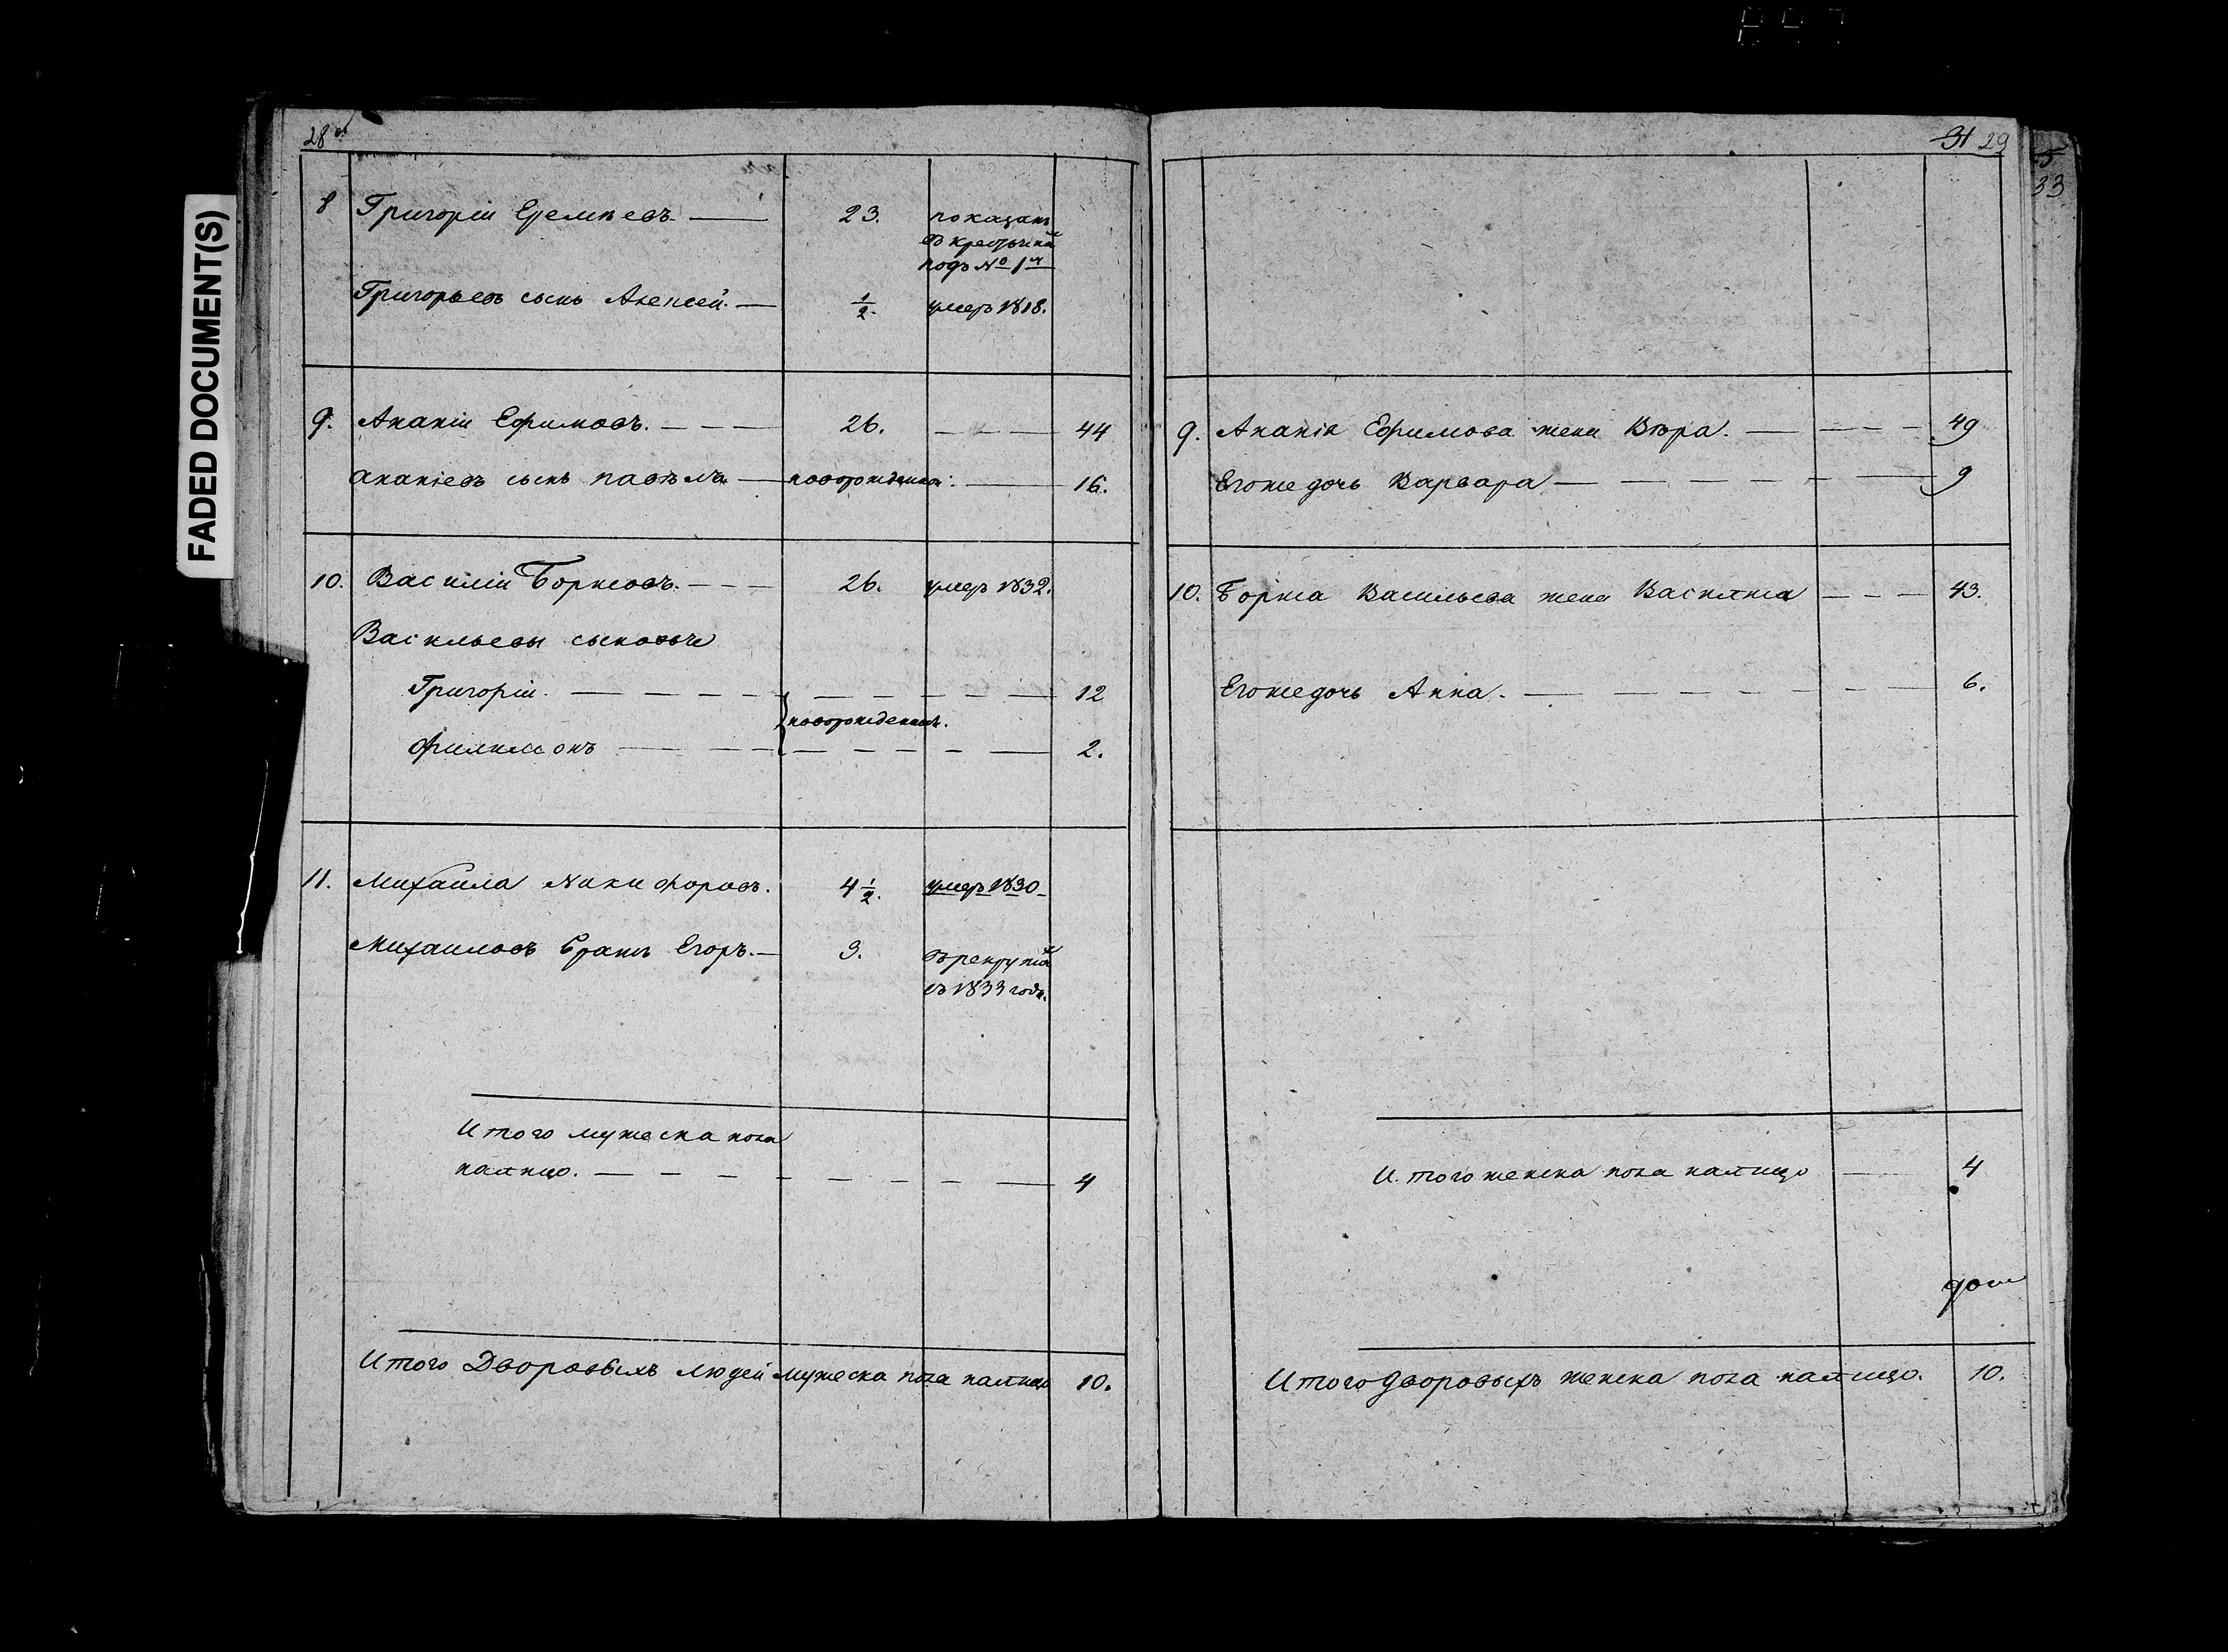 28 об
8 Григорій Еремѣевъ — 23. показанъ
въ крестьянахъ
подъ № 1м
Григорьевъ сынъ Алексей. — 1/2. умеръ 1818.
9. Ананій Ефимовъ. — — — 26. — — — 44
Ананіевъ сынъ павѣлъ — новорожденной. — 16.
10. Василій Борисовъ. — — — 26. умеръ 1832.
Васильевы сыновья
Григорій. — — — — — — — — — 12
новорожденные.
Филимонъ — — — — — — — — 2.
11. Михаила Никифоровъ. 4 1/2. умеръ 1830 —
Михаиловъ братъ Егоръ. — 3. въ рекрутах
съ 1833 года.
Итого мужеска пола
налицо. — — — — — — — — — 4
Итого Дворовыхъ людей мужеска пола налицо 10.
31 29
9. Ананія Ефимова жена Вѣра. — — — — 49
Егоже дочь Варвара — — — — — — — 9
10. Бориса Васильева жена Василиса — — — 43.
Егоже дочь Анна. — — — — — — — — 6.
Итого женска пола налицо — 4
Итого дворовыхъ женска пола налицо. 10.
5
33
FADED DOCUMENT(S)